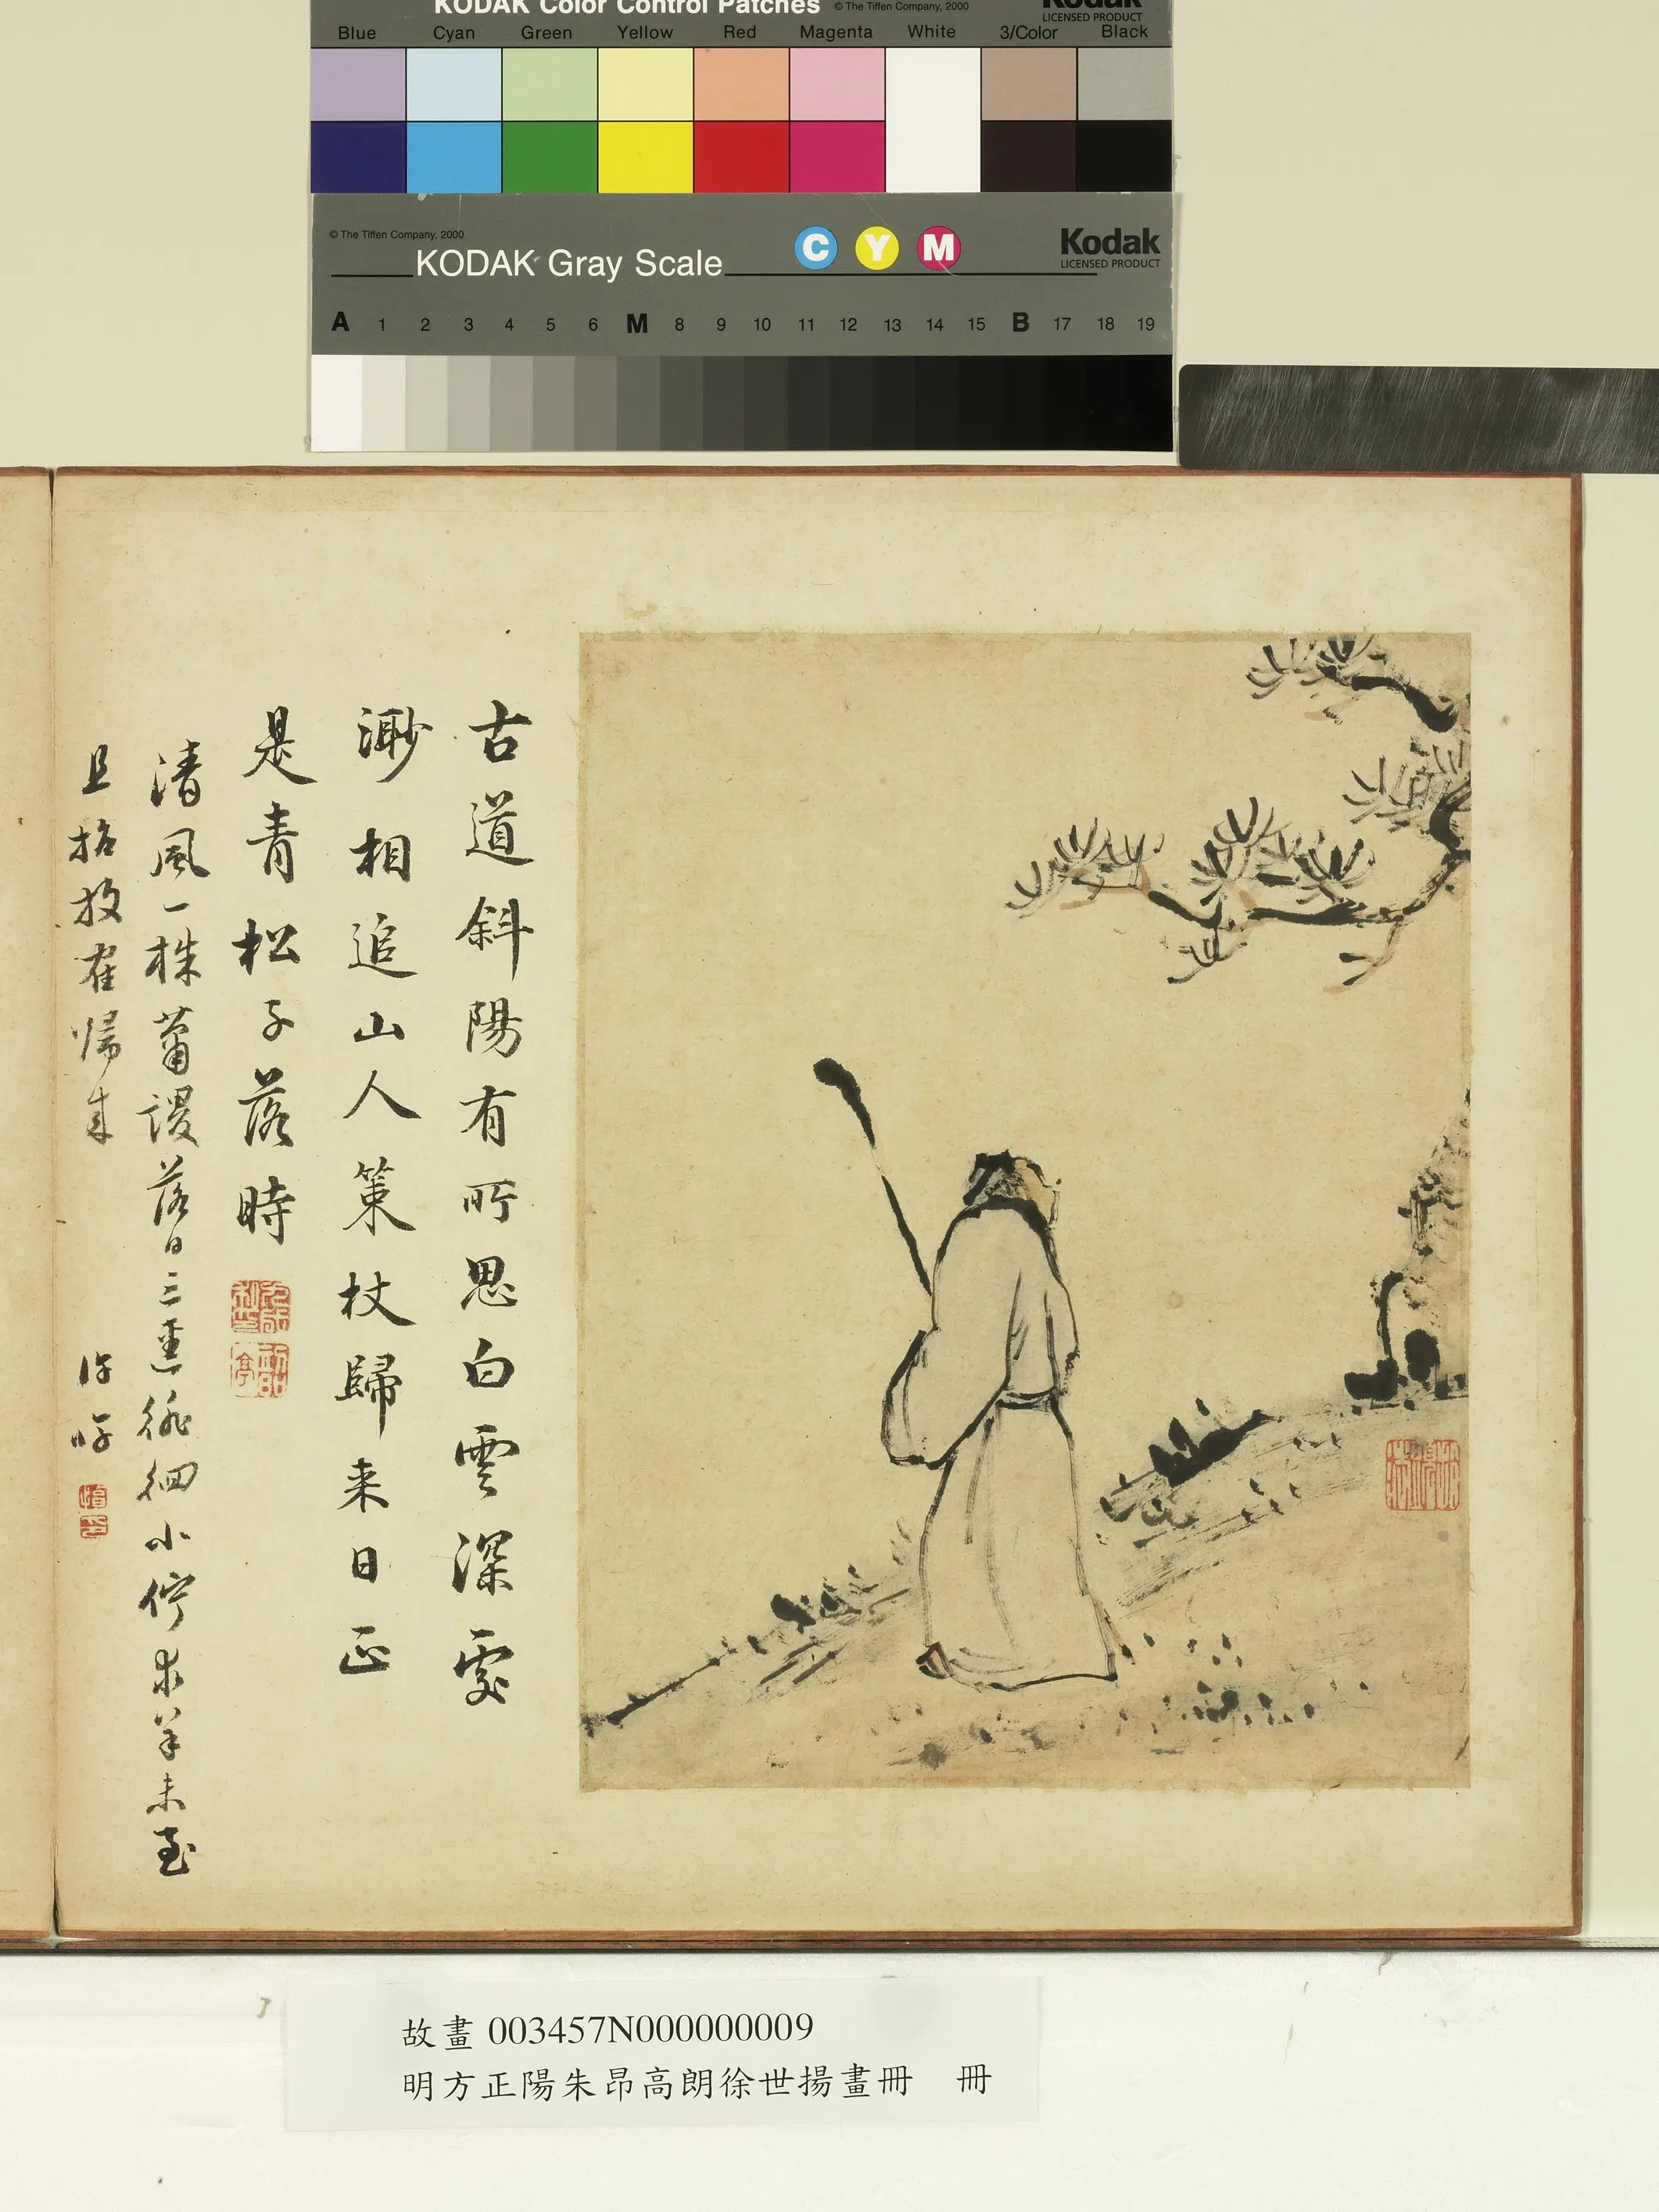 KODAK Color Control Patches © The Tiffen Company, 2000 Kodak
LICENSED PRODUCT
Blue Cyan Green Yellow Red Magenta White 3/Color Black
© The Tiffen Company, 2000
KODAK Gray Scale C Y M Kodak
LICENSED PRODUCT
A 1 2 3 4 5 6 M 8 9 10 11 12 13 14 15 B 17 18 19
古道斜陽有所思白雲深處
渺相追山人策杖歸来日正
是青松子落時
清風一株蕭謖落日三徑徘徊小佇求羊未至
且招放隺歸来
故畫 003457N000000009
明方正陽朱昂高朗徐世揚畫冊 冊